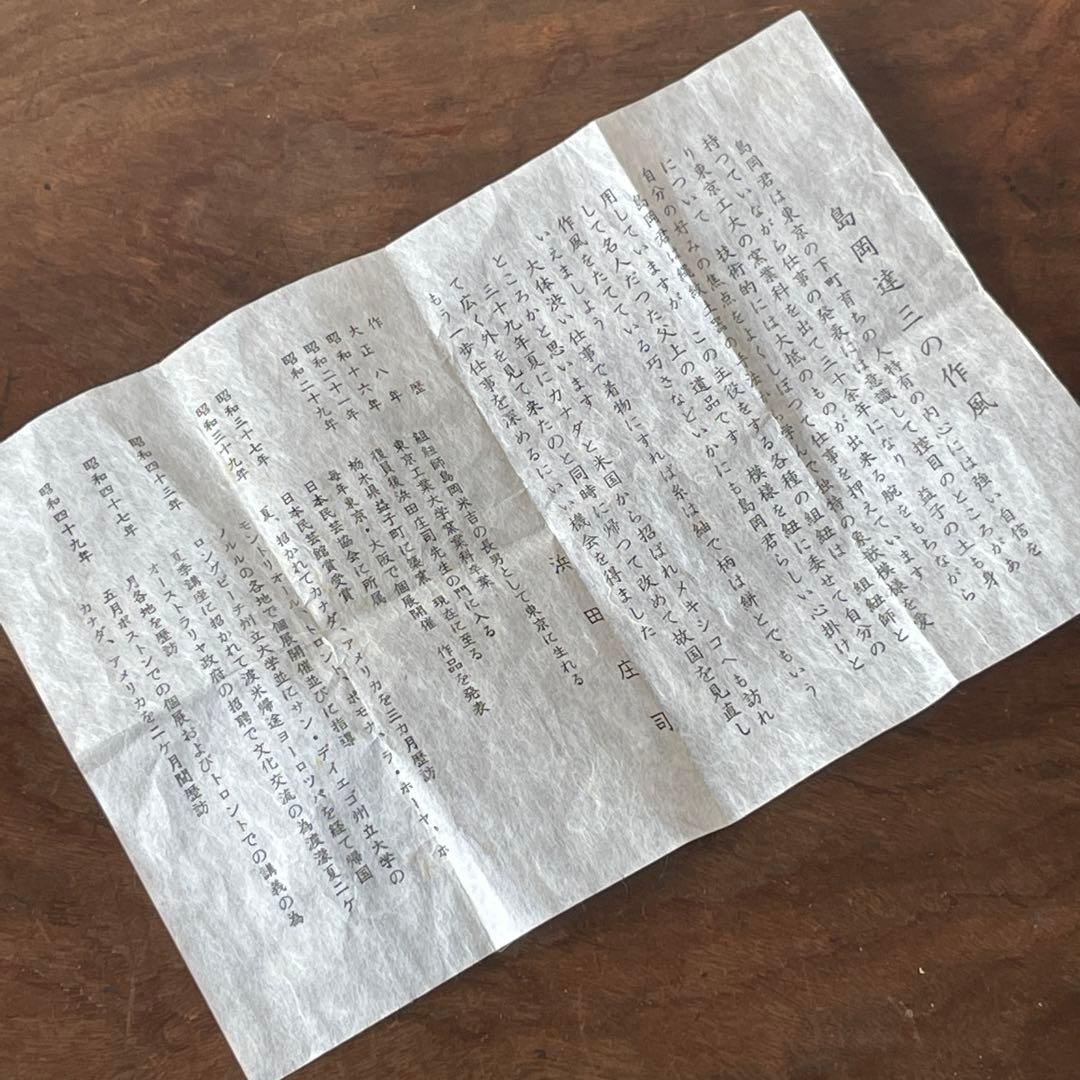 島岡達三の作風
島岡君は東京の下町育ちの人特有の内心には強い自信を
持つていながら仕事の発表には意識して控目のところがあ
り東京工大の窯業科を出て三十余年になり益子の土も身
について技術的には大抵のものが出来る腕をもちながら
自分の好みの焦点をよくしぼつて仕事を押えています
島岡君は
用していますが、この主役をする模様を各種の組紐は、組紐師と
して名人だつた父上の遺品です
作風をたてている巧さなどいかにも島岡君らしい心掛けと
いえましよう
大体渋い仕事で着物にすれば糸は紬で柄は絣とでもいう
ところかと思います
三十九年夏にカナダと米国から招ばれメキシコへも訪れ
て広く外を見て来たのと同時に帰つて改めて故国を見直し
もう一歩仕事を深めるにいい機会を得ました
浜田庄司
作歴
大正八年 組紐師島岡米吉の長男として東京に生れる
昭和十六年 東京工業大学窯業科卒業
昭和二十一年 復員後浜田庄司先生の門に入る
昭和二十九年 栃木県益子町に築窯 現在に至る
毎年東京・大阪で個展開催 作品を発表
日本民芸協会に所属
昭和三十七年 日本民芸館賞受賞
昭和三十九年 夏、招かれてカナダ、アメリカを三カ月歴訪
モントリオール、トロント、ポモナ、ラ・ホーヤ、ホ
ノルルの各地で個展開催並びに指導
昭和四十三年 ロングビーチ州立大学並にサン・デイエゴ州立大学の
夏季講座に招かれて渡米帰途ヨーロッパを経て帰国
昭和四十七年 オーストラリヤ政府の招聘で文化交流の為渡濠夏二ケ
月各地を歴訪
昭和四十九年 五月ボストンでの個展およびトロントでの講義の為
カナダ、アメリカを二ケ月間歴訪